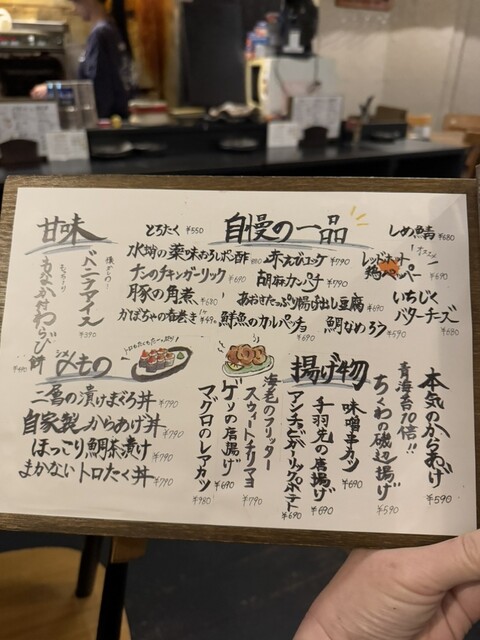 自慢の一品
とろたく ¥550
しめ鯖 ¥680
水蛸の薬味おろしポン酢 880
赤えびユッケ ¥790
レッドホット
鶏ペッパー ¥690
チンのチキンガーリック ¥690
胡麻カンパチ ¥790
豚の角煮 ¥680
あおさたっぷり揚げ出し豆腐 ¥690
いちじく
バターチーズ ¥680
かぼちゃの春巻き
鮮魚のカルパッチョ ¥690
鯛なめろう ¥590
甘味
バニラアイス ¥390
わらび餅
〆もの
シメ
二層の漬けまぐろ丼 ¥790
自家製からあげ丼 ¥790
ほっこり鯛茶漬け ¥790
まかないトロたく丼 ¥790
揚げ物
本気のからあげ ¥590
青海苔10倍!!
ちくわの磯辺揚げ ¥590
味噌串カツ ¥690
手羽先の唐揚げ ¥690
アンチョビガーリックポテト ¥690
海老のフリッター
スウィートチリマヨ ¥790
ゲソの唐揚げ ¥690
マグロのレアカツ ¥980